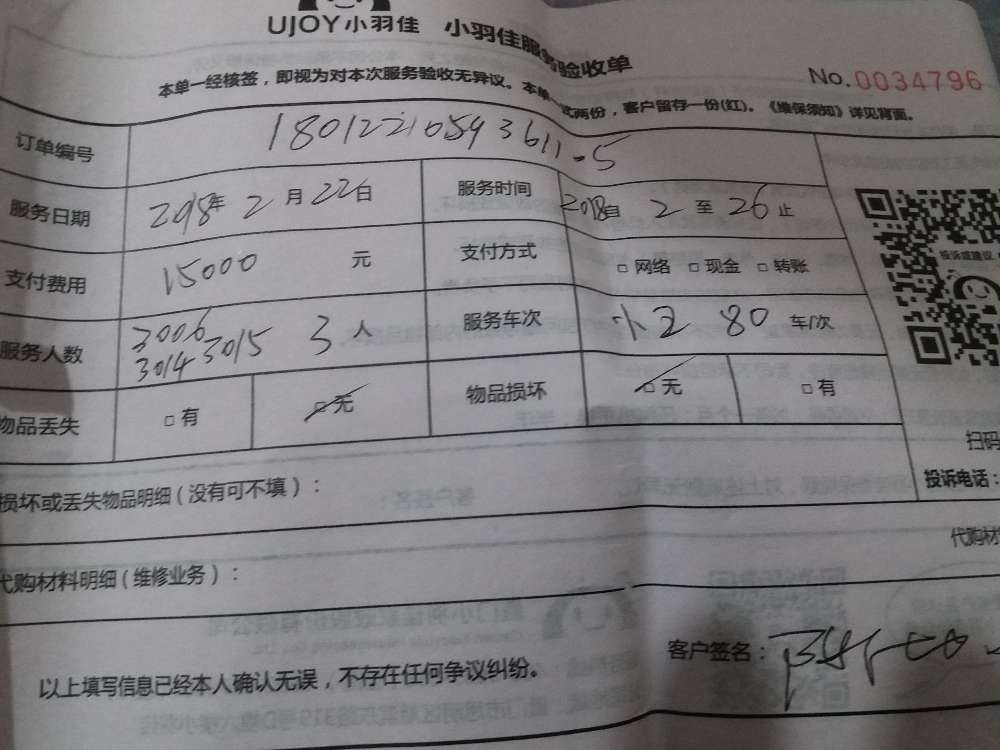 UJOY小羽佳 小羽佳服务验收单
No.0034796
本单一经核签，即视为对本次服务验收无异议。本单一式两份，客户留存一份(红)。《维保须知》详见背面。
订单编号 180122105943611-5
服务日期 2018年 2 月 22日 服务时间 2018自 2 至 26 止
支付费用 15000 元 支付方式 □ 网络 □ 现金 □ 转账
服务人数 3006 3014 3015 3 人 服务车次 小 2 80 车/次
物品丢失 □ 有 □ 无 物品损坏 □ 无 □ 有
投诉或建议
扫码
损坏或丢失物品明细（没有可不填）：
投诉电话：
代购材料明细（维修业务）：
代购材
客户签名：
以上填写信息已经本人确认无误，不存在任何争议纠纷。